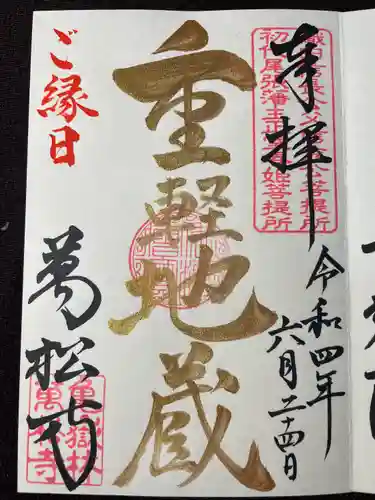 奉拝
令和四年
六月二十四日
初代尾張藩主正室春姫菩提所
重軽地蔵
ご縁日
萬松寺
亀嶽林
萬松寺